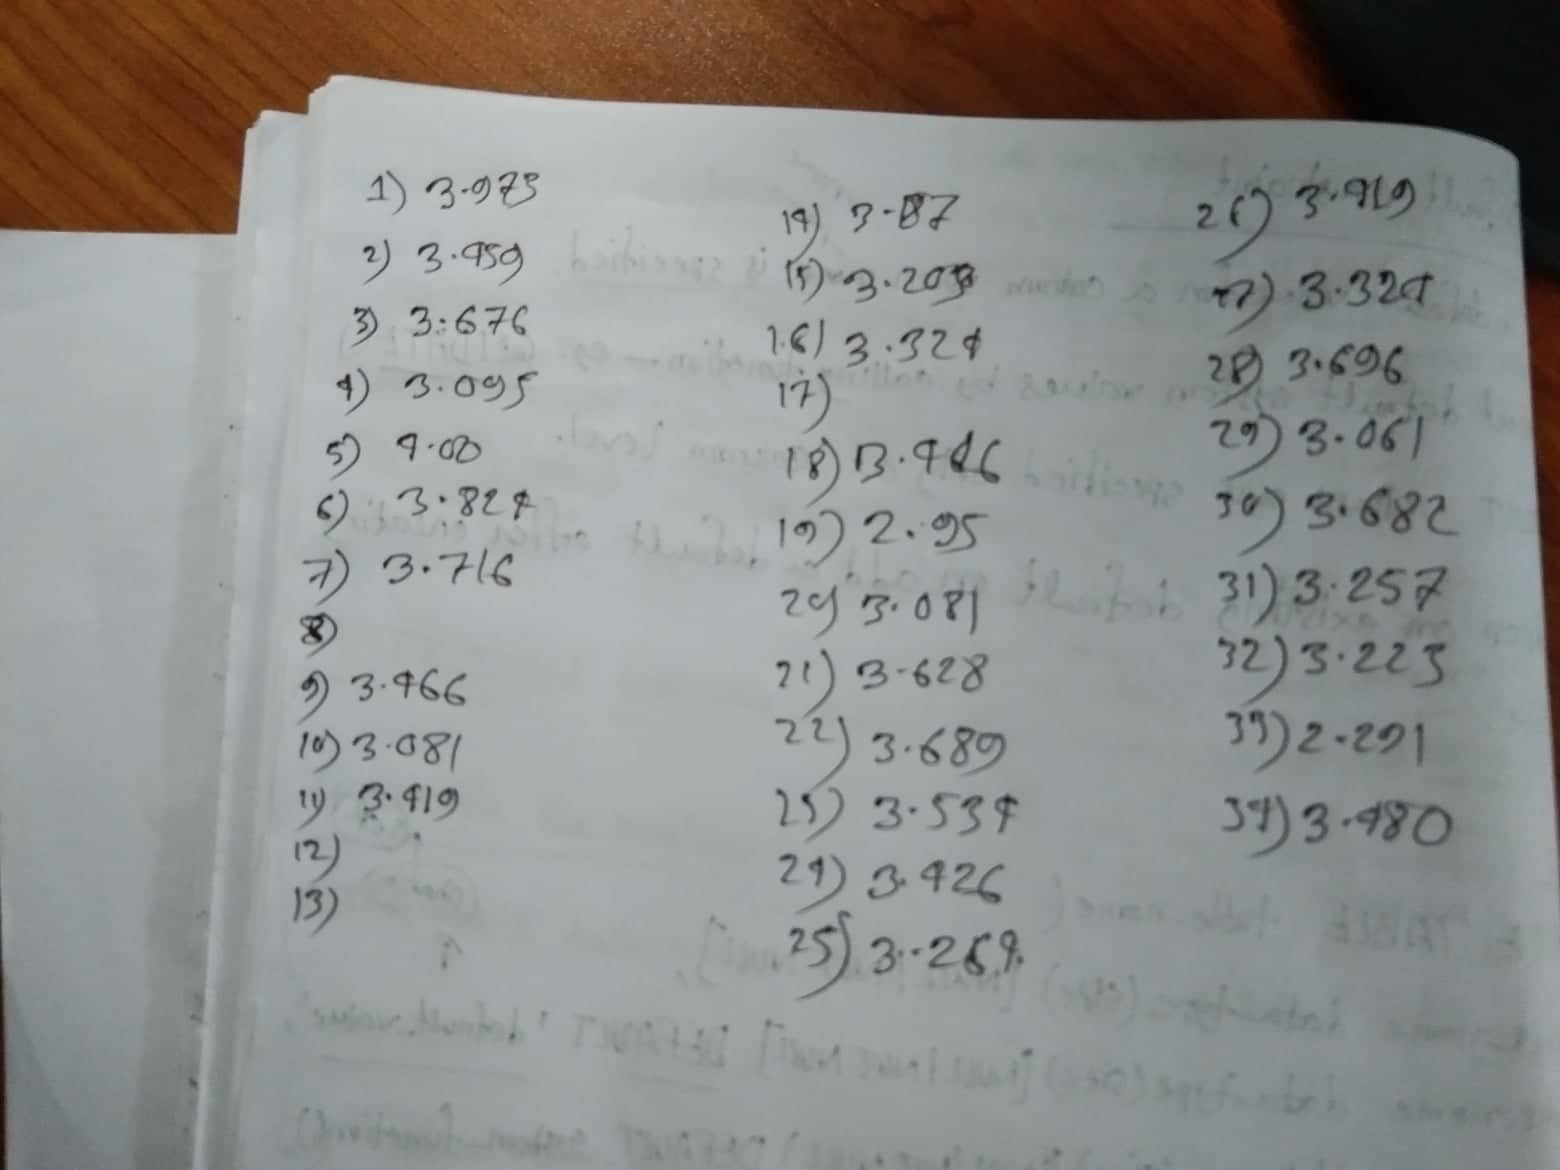 1) 3.973
2) 3.459
3) 3.676
4) 3.095
5) 4.00
6) 3.824
7) 3.716
8)
9) 3.466
10) 3.081
11) 3.419
12)
13)
14) 3.87
15) 3.203
16) 3.324
17)
18) 3.446
19) 2.95
20) 3.081
21) 3.628
22) 3.689
23) 3.534
24) 3.426
25) 3.264
26) 3.419
27) 3.324
28) 3.696
29) 3.061
30) 3.682
31) 3.257
32) 3.223
33) 2.291
34) 3.480